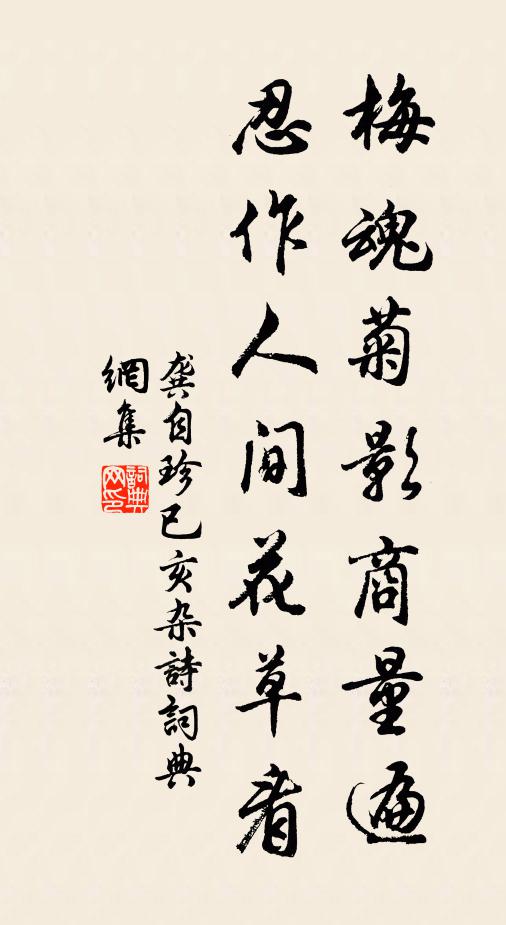 梅魂菊影商量遍
忍作人間花草看
龔自珍己亥杂詩詞典
網集
詞典网印